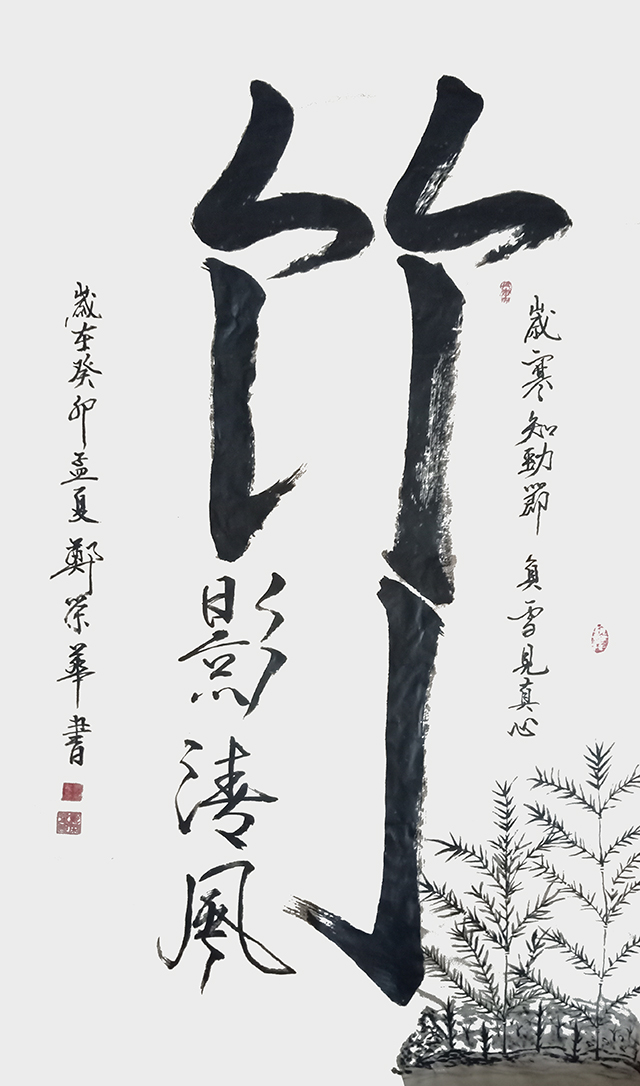 歲寒知勁節 負雪見真心
竹影清風
歲在癸卯孟夏鄭榮華書